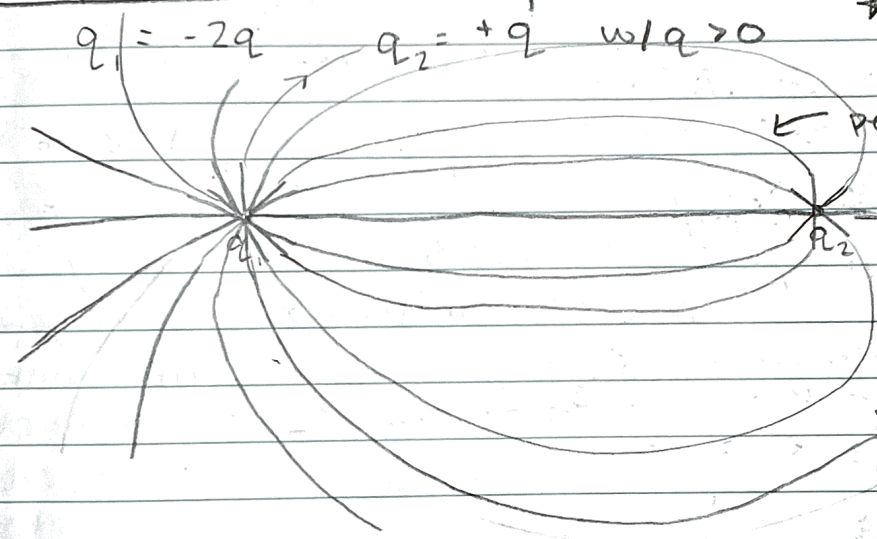 q₁ = -2q q₂ = +q w/ q > 0
q₁
q₂